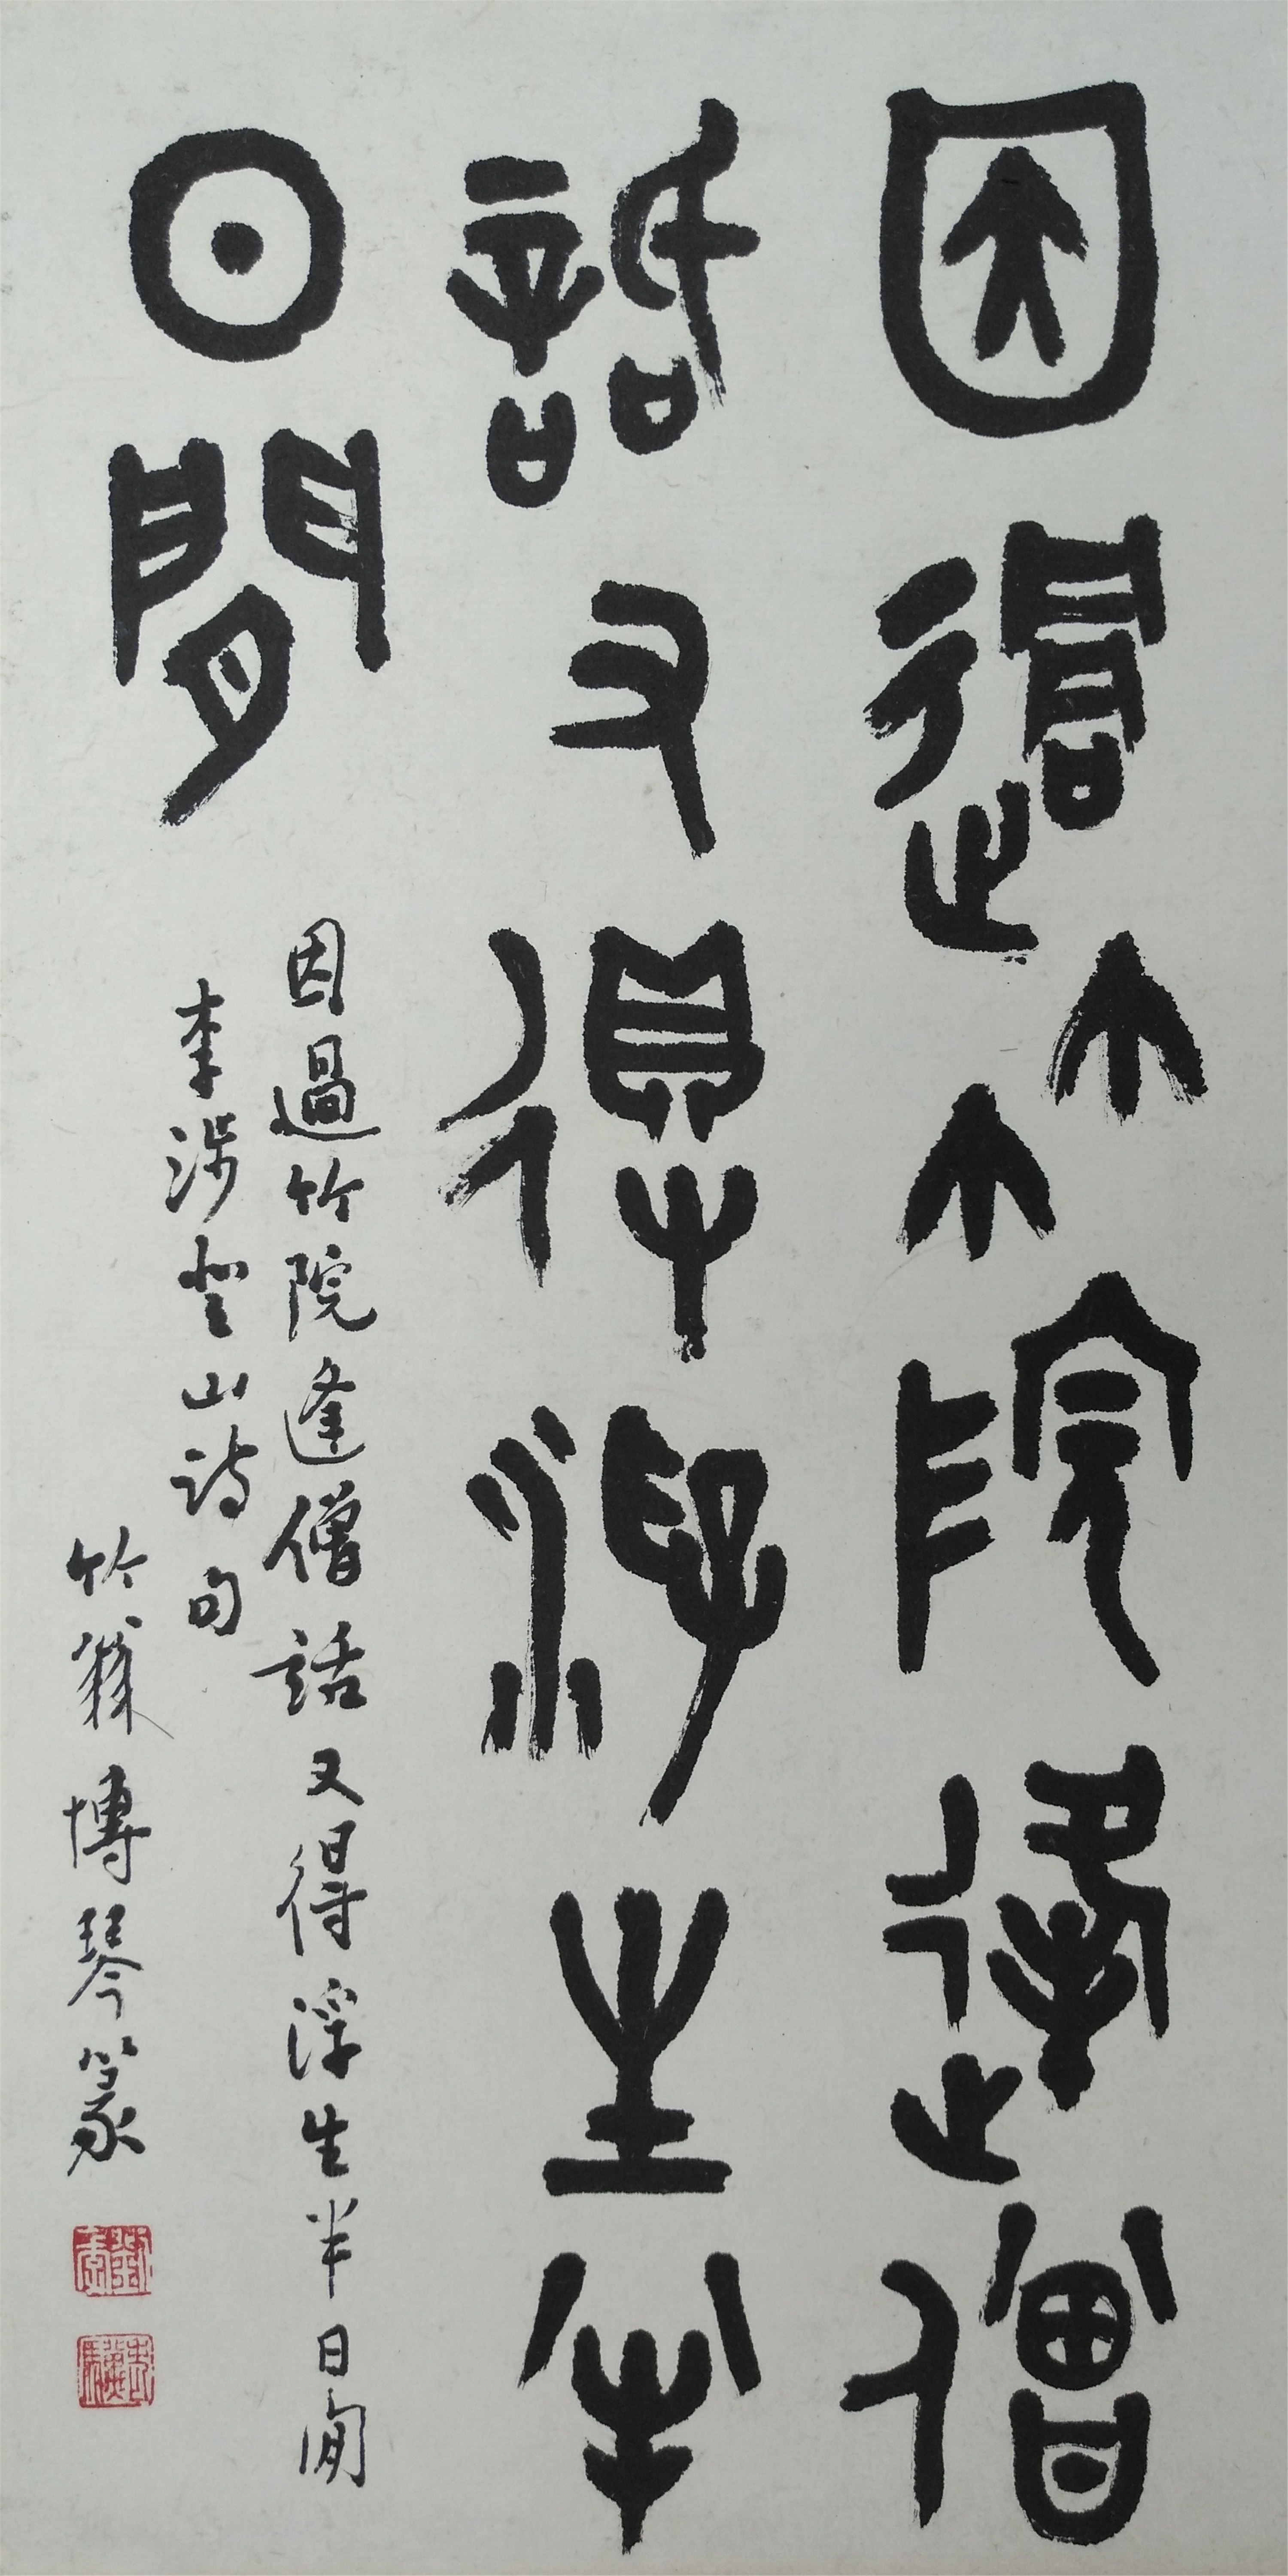 因過竹院逢僧
話又得浮生半
日閒
因過竹院逢僧話又得浮生半日閒
李涉登山詩句
竹 博琴篆